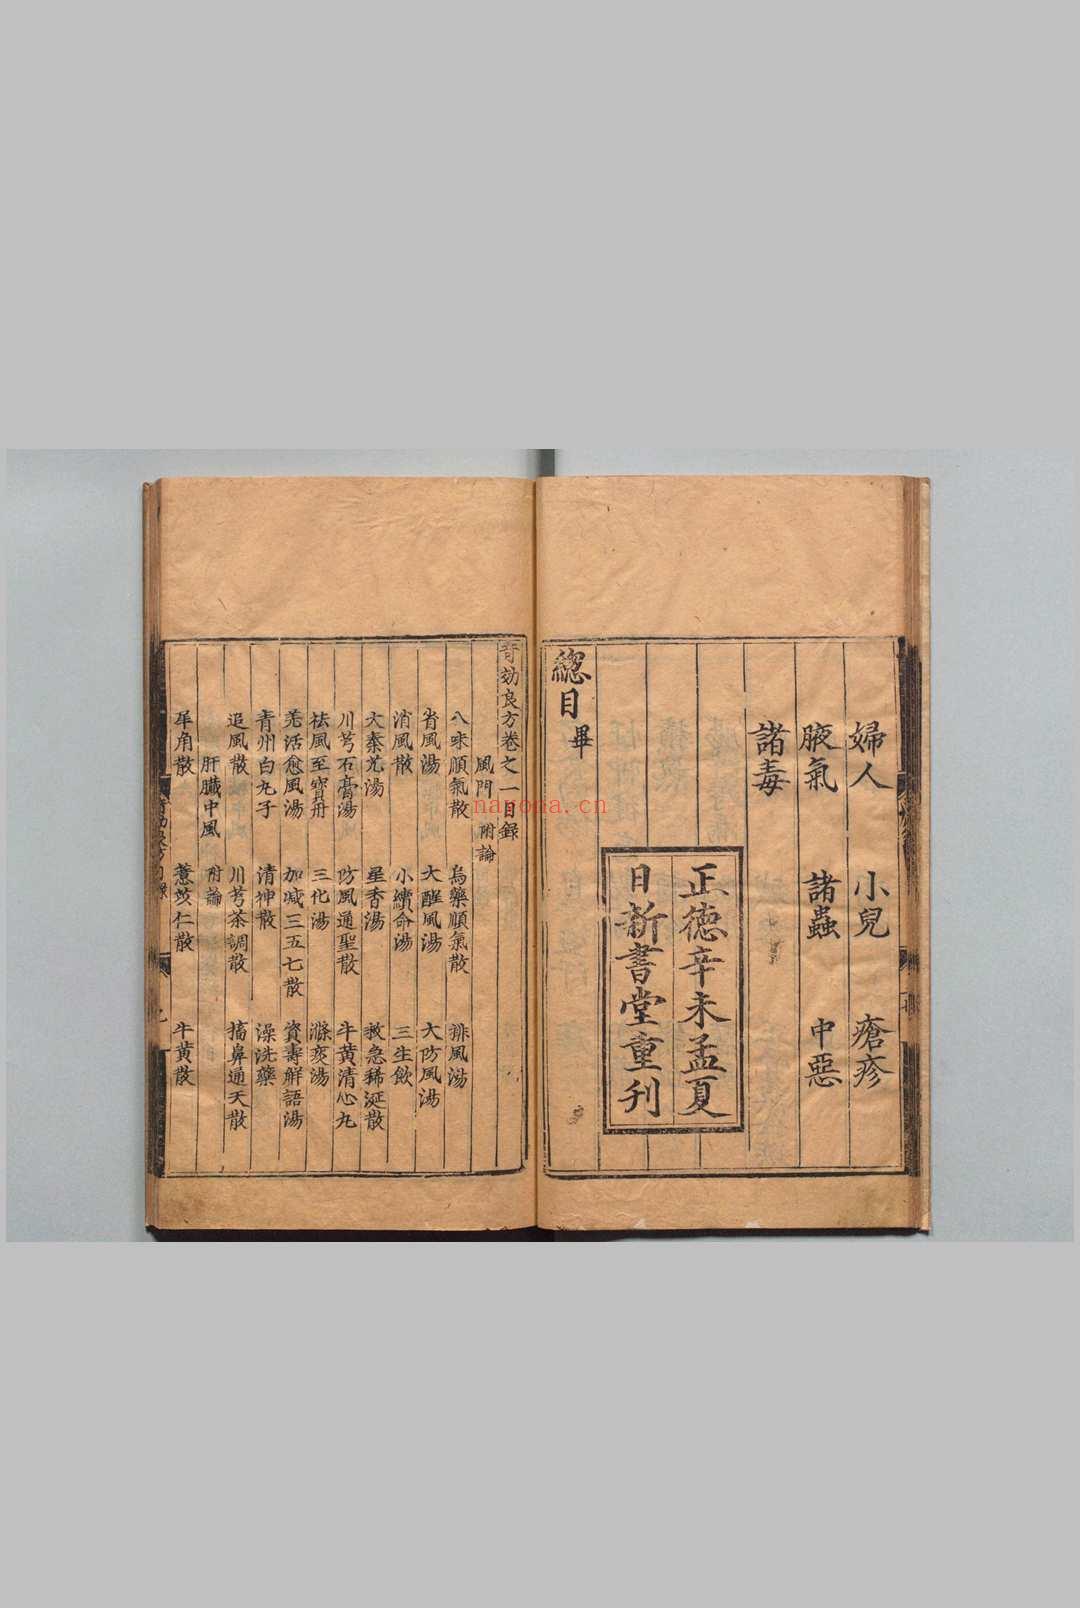 婦人 小兒 瘡疹
腋氣 諸蟲 中惡
諸毒
正德辛未孟夏
日新書堂重刊
總目畢
奇効良方卷之一目錄
風門 附論
八味順氣散 烏藥順氣散 排風湯
省風湯 大醒風湯 大防風湯
消風散 小續命湯 三生飲
大秦艽湯 星香湯 救急稀涎散
川芎石膏湯 防風通聖散 牛黃清心丸
祛風至寶丹 三化湯 滌痰湯
羌活愈風湯 加減三五七散 資壽解語湯
青州白丸子 清神散 澡洗藥
追風散 川芎茶調散 搐鼻通天散
肝臟中風 附論
犀角散 薏苡仁散 牛黃散
nayona.cn